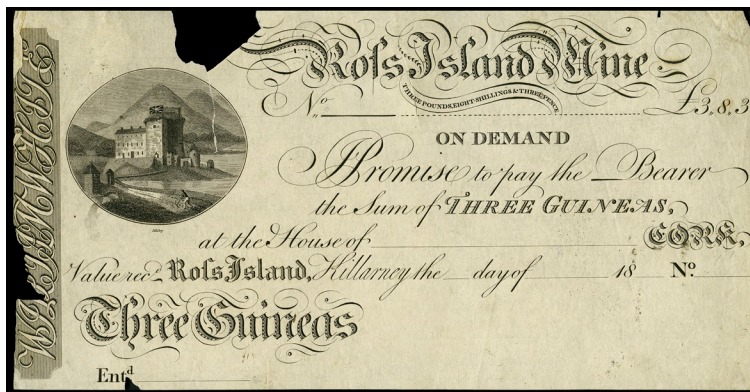 Roſs Island Mine
THREE POUNDS, EIGHT-SHILLINGS & THREEPENCE
No £3,8,3
ON DEMAND
I Promise to pay the Bearer
the Sum of THREE GUINEAS,
at the House of CORK,
Value recd Roſs Island, Killarney the day of 18 No
Three Guineas
Entd